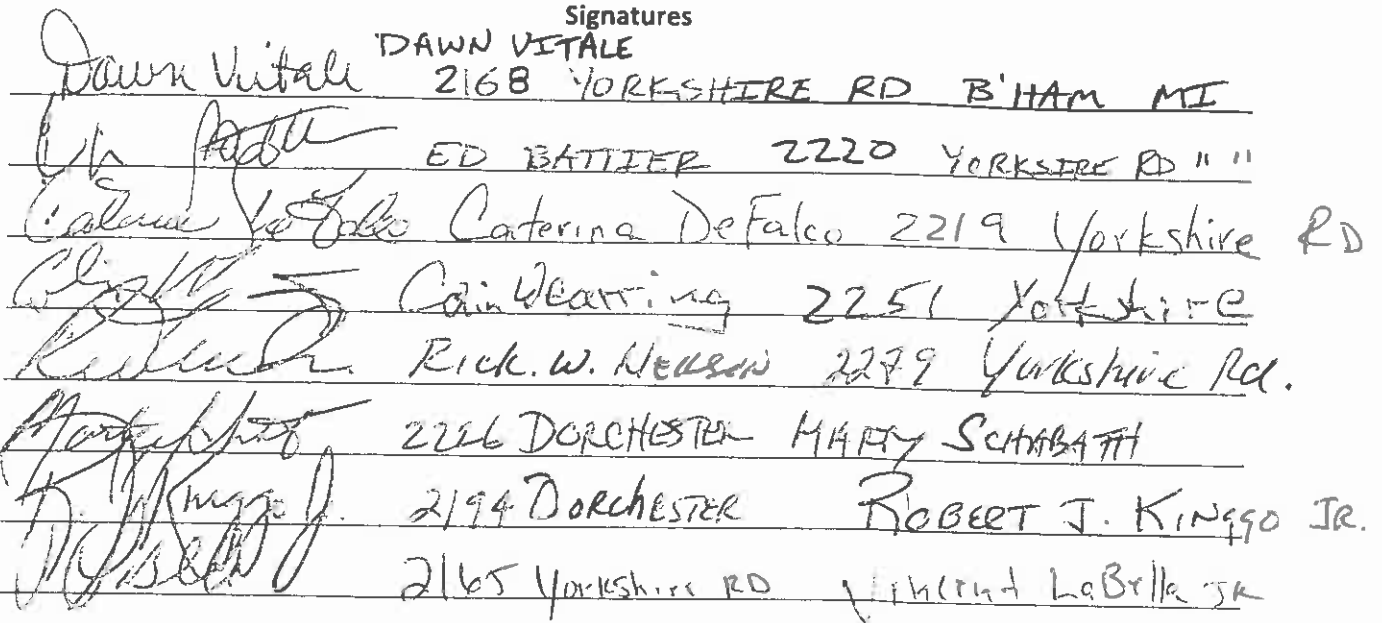 Signatures
DAWN VITALE
Dawn Vitale 2168 YORKSHIRE RD B'HAM MI
ED BATTIER 2220 YORKSIRE RD " "
Caterina DeFalco 2219 Yorkshire RD
2251 Yorkshire
Rick. W. 2279 Yorkshire Rd.
DORCHESTER MARTY SCHABATH
2194 DORCHESTER ROBERT J. KINGGO JR.
2165 Yorkshire RD Vincent LaBella JR